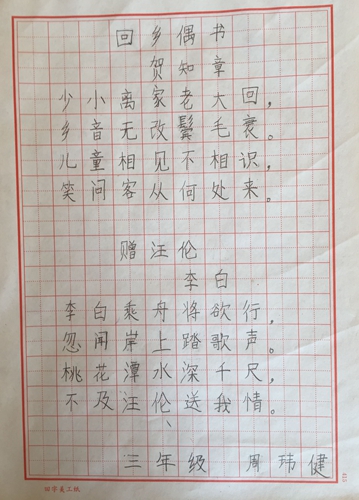 回乡偶书
贺知章
少小离家老大回，
乡音无改鬓毛衰。
儿童相见不相识，
笑问客从何处来。
赠汪伦
李白
李白乘舟将欲行，
忽闻岸上踏歌声。
桃花潭水深千尺，
不及汪伦送我情。
三年级 周玮健